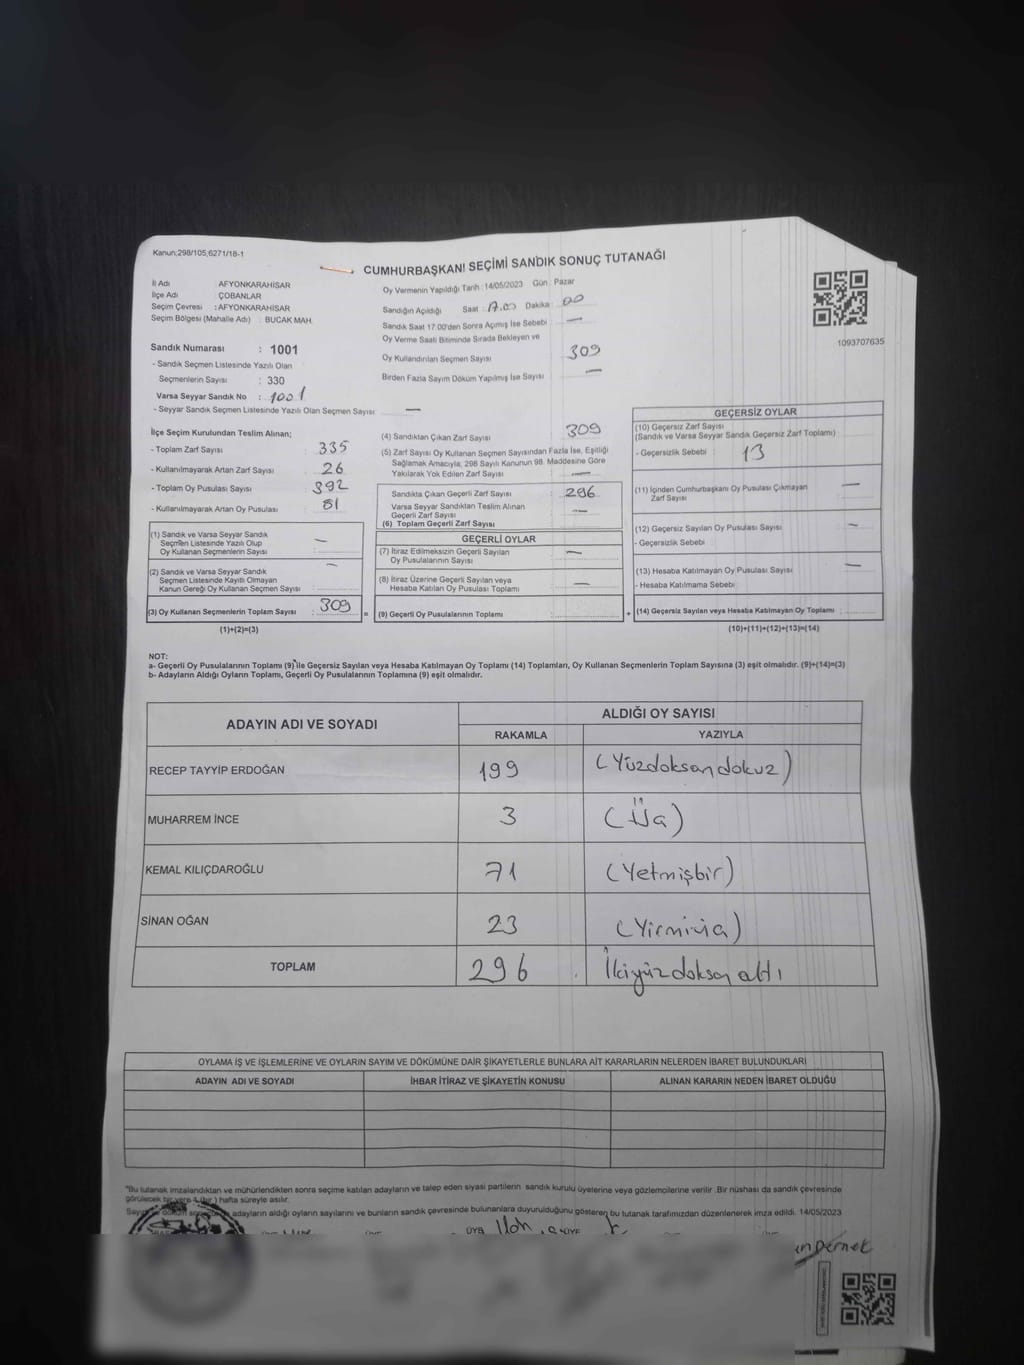 Kanun;298/105,6271/18-1
CUMHURBAŞKANI SEÇİMİ SANDIK SONUÇ TUTANAĞI
İl Adı AFYONKARAHİSAR
İlçe Adı ÇOBANLAR
Seçim Çevresi : AFYONKARAHİSAR
Seçim Bölgesi (Mahalle Adı) : BUCAK MAH.
Sandık Numarası : 1001
- Sandık Seçmen Listesinde Yazılı Olan
Seçmenlerin Sayısı : 330
Varsa Seyyar Sandık No : 1001
- Seyyar Sandık Seçmen Listesinde Yazılı Olan Seçmen Sayısı: —
Oy Vermenin Yapıldığı Tarih :14/05/2023 Gün Pazar
Sandığın Açıldığı Saat 17.00 Dakika 00
Sandık Saat 17:00'den Sonra Açımış İse Sebebi —
Oy Verme Saati Bitiminde Sırada Bekleyen ve
Oy Kullandırılan Seçmen Sayısı 309
Birden Fazla Sayım Döküm Yapılmış İse Sayısı —
1093707635
İlçe Seçim Kurulundan Teslim Alınan;
- Toplam Zarf Sayısı : 335
- Kullanılmayarak Artan Zarf Sayısı : 26
- Toplam Oy Pusulası Sayısı : 392
- Kullanılmayarak Artan Oy Pusulası : 81
(1) Sandık ve Varsa Seyyar Sandık
Seçmen Listesinde Yazılı Olup
Oy Kullanan Seçmenlerin Sayısı : —
(2) Sandık ve Varsa Seyyar Sandık
Seçmen Listesinde Kayıtlı Olmayan
Kanun Gereği Oy Kullanan Seçmen Sayısı : —
(3) Oy Kullanan Seçmenlerin Toplam Sayısı : 309 =
(1)+(2)=(3)
(4) Sandıktan Çıkan Zarf Sayısı : 309
(5) Zarf Sayısı Oy Kullanan Seçmen Sayısından Fazla İse, Eşitliği
Sağlamak Amacıyla, 298 Sayılı Kanunun 98. Maddesine Göre
Yakılarak Yok Edilen Zarf Sayısı : —
Sandıkta Çıkan Geçerli Zarf Sayısı : 296
Varsa Seyyar Sandıktan Teslim Alınan
Geçerli Zarf Sayısı : —
(6) Toplam Geçerli Zarf Sayısı
GEÇERLİ OYLAR
(7) İtiraz Edilmeksizin Geçerli Sayılan
Oy Pusulalarının Sayısı : —
(8) İtiraz Üzerine Geçerli Sayılan veya
Hesaba Katılan Oy Pusulası Toplamı : —
(9) Geçerli Oy Pusulalarının Toplamı +
GEÇERSİZ OYLAR
(10) Geçersiz Zarf Sayısı
(Sandık ve Varsa Seyyar Sandık Geçersiz Zarf Toplamı)
- Geçersizlik Sebebi : 13
(11) İçinden Cumhurbaşkanı Oy Pusulası Çıkmayan
Zarf Sayısı —
(12) Geçersiz Sayılan Oy Pusulası Sayısı : —
- Geçersizlik Sebebi
(13) Hesaba Katılmayan Oy Pusulası Sayısı —
- Hesaba Katılmama Sebebi
(14) Geçersiz Sayılan veya Hesaba Katılmayan Oy Toplamı :
(10)+(11)+(12)+(13)=(14)
NOT:
a- Geçerli Oy Pusulalarının Toplamı (9) ile Geçersiz Sayılan veya Hesaba Katılmayan Oy Toplamı (14) Toplamları, Oy Kullanan Seçmenlerin Toplam Sayısına (3) eşit olmalıdır. (9)+(14)=(3)
b- Adayların Aldığı Oyların Toplamı, Geçerli Oy Pusulalarının Toplamına (9) eşit olmalıdır.
ADAYIN ADI VE SOYADI
ALDIĞI OY SAYISI
RAKAMLA YAZIYLA
RECEP TAYYİP ERDOĞAN 199 (Yüzdoksandokuz)
MUHARREM İNCE 3 (Üç)
KEMAL KILIÇDAROĞLU 71 (Yetmişbir)
SİNAN OĞAN 23 (Yirmiüç)
TOPLAM 296 İkiyüzdoksanaltı
OYLAMA İŞ VE İŞLEMLERİNE VE OYLARIN SAYIM VE DÖKÜMÜNE DAİR ŞİKAYETLERLE BUNLARA AİT KARARLARIN NELERDEN İBARET BULUNDUKLARI
ADAYIN ADI VE SOYADI İHBAR İTİRAZ VE ŞİKAYETİN KONUSU ALINAN KARARIN NEDEN İBARET OLDUĞU
"Bu tutanak imzalandıktan ve mühürlendikten sonra seçime katılan adayların ve talep eden siyasi partilerin sandık kurulu üyelerine veya gözlemcilerine verilir .Bir nüshası da sandık çevresinde
görülecek bir yere 1 (bir ) hafta süreyle asılır.
adayların aldığı oyların sayılarını ve bunların sandık çevresinde bulunanlara duyurulduğunu gösteren bu tutanak tarafımızdan düzenlenerek imza edildi. 14/05/2023